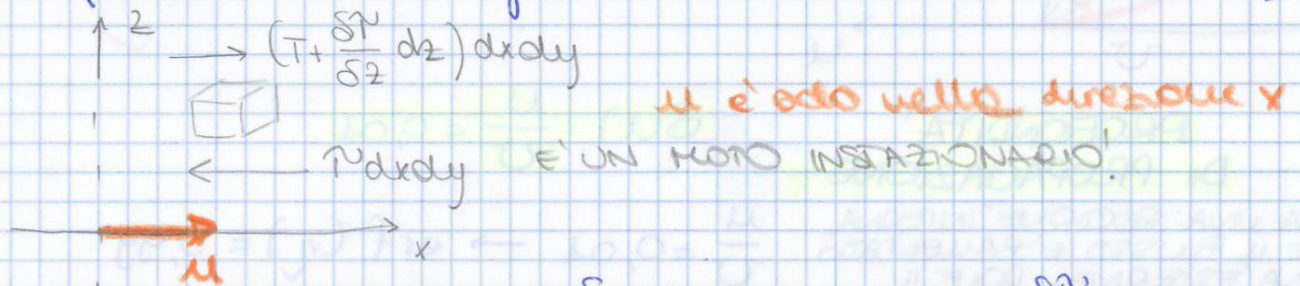 z
(τ + δτ/δz dz) dxdy
u è solo nella direzione x
τ dxdy È UN MOTO INSTAZIONARIO!
x
u